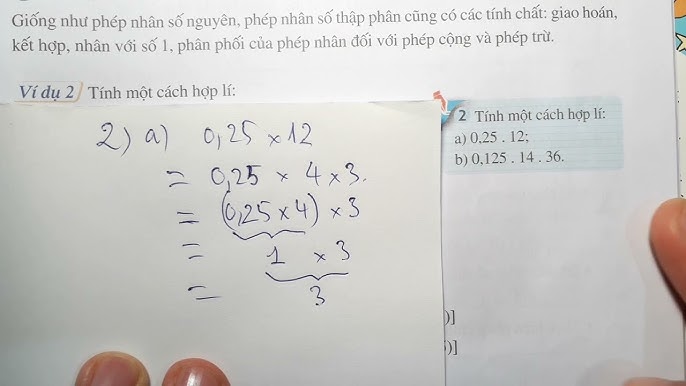 Giống như phép nhân số nguyên, phép nhân số thập phân cũng có các tính chất: giao hoán,
kết hợp, nhân với số 1, phân phối của phép nhân đối với phép cộng và phép trừ.
Ví dụ 2 Tính một cách hợp lí:
2) a) 0,25 × 12
= 0,25 × 4 × 3.
= (0,25 × 4) × 3
= 1 × 3
= 3
2 Tính một cách hợp lí:
a) 0,25 . 12;
b) 0,125 . 14 . 36.
)]
)]